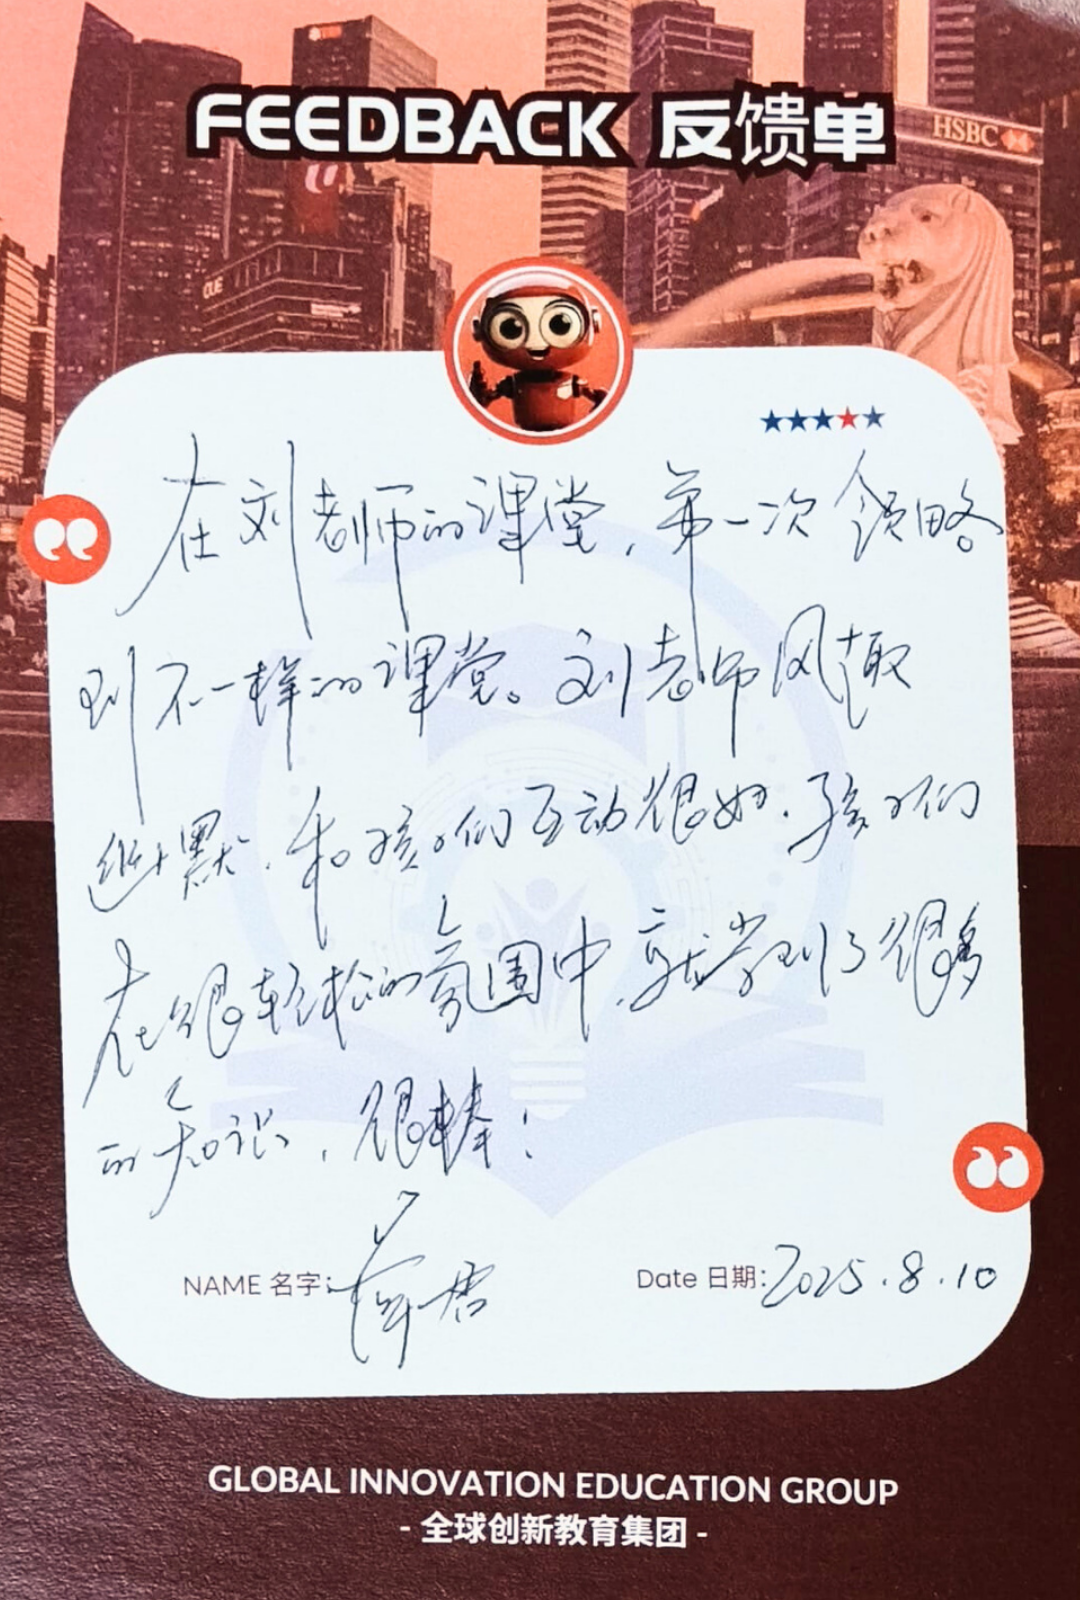 FEEDBACK 反馈单
HSBC
CUE
在刘老师的课堂,第一次领略
到不一样的课堂。刘老师风趣
幽默,和孩子们互动很好,孩子们
在很轻松的氛围中,就学到了很多
的知识,很棒!
NAME 名字:
Date 日期:2025.8.10
GLOBAL INNOVATION EDUCATION GROUP
- 全球创新教育集团 -